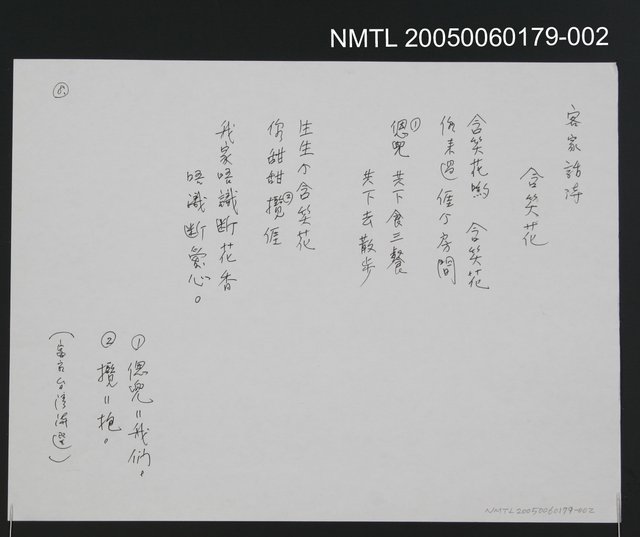 NMTL 20050060179-002
客家話詩
含笑花
含笑花喲 含笑花
你來過𠊎个房間
偲兜① 共下食三餐
共下去散步
生生个含笑花
你甜甜攬②𠊎
我家唔識斷花香
唔識斷愛心。
①偲兜=我們。
②攬=抱。
8.
NMTL 20050060179-002